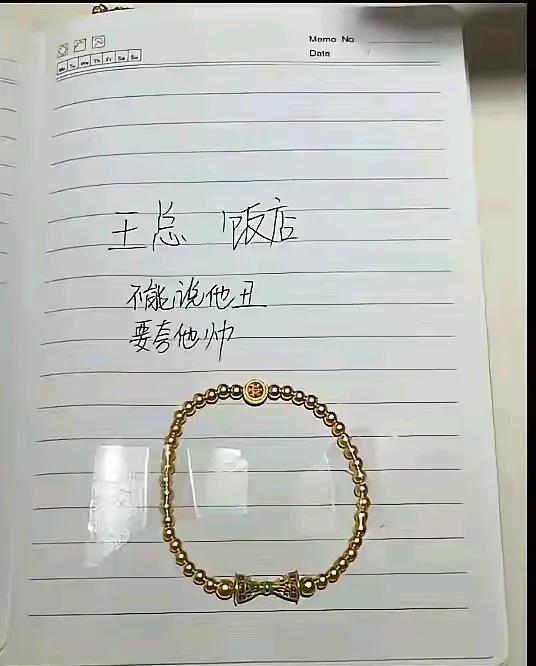 Memo No.
Date
Mo Tu We Th Fr Sa Su
王总 饭店
不能说他丑
要夸他帅